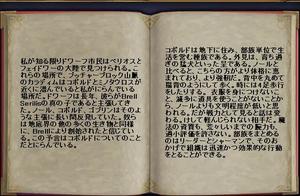 私が知る限りドワーフ市民はベリオスと
フェイドワーの大陸で見つけられる。こ
れらの場所で、ブッチャーブロック山脈
のカラディムはコボルドとミノタウロスが
近くに潜んでいると私がにらんでいる
場所だ。ドワーフは長年、彼らがBrell
Serilisの真の子であると主張してき
た。ノール、コボルド、ゴブリンはそのよ
うな主張に長い間反発していた。彼ら
は地底界の他の多くの生き物と同様
に、Brellにより創始されたと信じてい
る。この予言はコボルドについてのこと
だとにらんでいる。
コボルドは地下に住み、部族単位で生
活を営む種族である。外見は、育ち過
ぎの猛犬といった呈である。ノールと
比べると、こちらの方がより体格に恵
まれており、より強靭だ。背中を丸めて
猫背のようにして歩く。時には徒歩行
をしたりする。衣服を身につけないこ
と、滅多に道具を使うことがないことか
ら、ノールよりも文明程度が低いと思
われる。だが戦力として見ると話は変
わる。けして軽んじられない相手だ。魔
法の資質も、荒々しいまでの腕力も、
過小評価を許さない。部族をまとめる
のはリーダーとシャーマンで、そのお
かげで組織は迅速かつ効果的な行動
をとることができる。